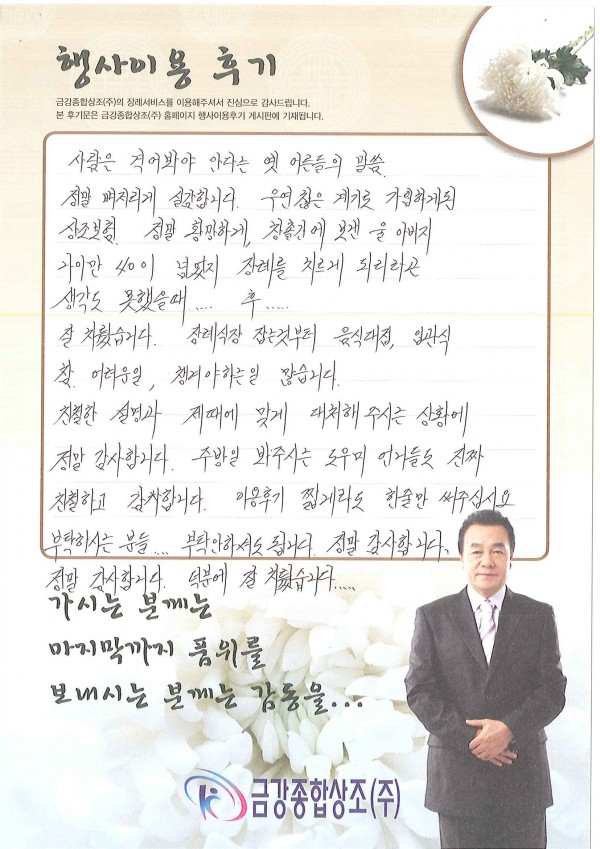 행사이용 후기
금강종합상조(주)의 장례서비스를 이용해주셔서 진심으로 감사드립니다.
본 후기문은 금강종합상조(주) 홈페이지 행사이용후기 게시판에 기재됩니다.
사람은 격어봐야 안다는 옛 어른들의 말씀.
정말 뼈저리게 실감합니다. 우연찮은 계기로 가입하게된
상조보험. 정말 황망하게, 창졸간에 보낸 울 아버지
나이만 40이 넘었지 장례를 치르게 되리라곤
생각도 못했을때.... 휴.....
잘 치뤘습니다. 장례식장 잡는것부터 음식대접, 입관식
참. 어려운일, 챙겨야하는일 많습니다.
친절한 설명과 제때에 맞게 대처해 주시는 상황에
정말 감사합니다. 주방일 봐주시는 도우미 언니들도 진짜
친절하고 감사합니다. 이용후기 짧게라도 한줄만 써주십시요
부탁하시는 분들... 부탁안하셔도 됩니다. 정말 감사합니다.
정말 감사합니다. 덕분에 잘 치뤘습니다.....
가시는 분께는
마지막까지 품위를
보내시는 분께는 감동을...
금강종합상조(주)